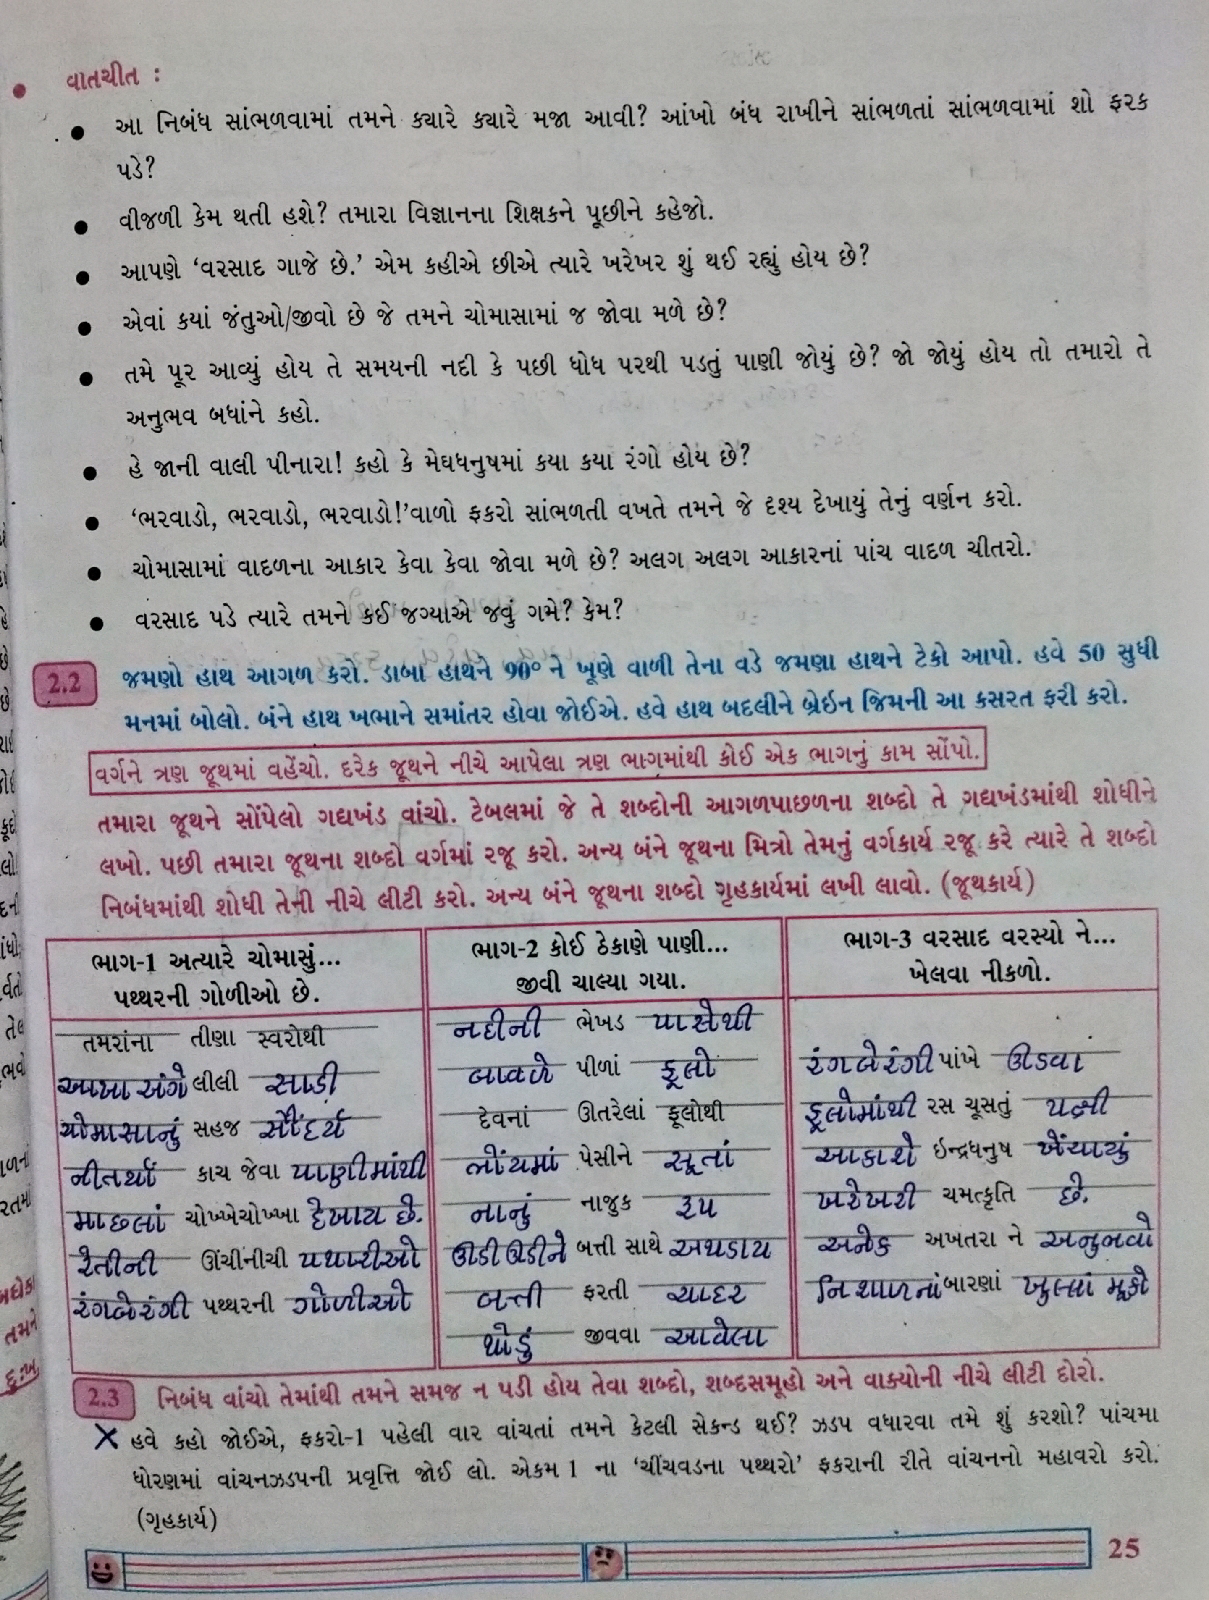 વાતચીત :
આ નિબંધ સાંભળવામાં તમને ક્યારે ક્યારે મજા આવી? આંખો બંધ રાખીને સાંભળતાં સાંભળવામાં શો ફરક
પડે?
વીજળી કેમ થતી હશે? તમારા વિજ્ઞાનના શિક્ષકને પૂછીને કહેજો.
આપણે ‘વરસાદ ગાજે છે.’ એમ કહીએ છીએ ત્યારે ખરેખર શું થઈ રહ્યું હોય છે?
એવાં કયાં જંતુઓ/જીવો છે જે તમને ચોમાસામાં જ જોવા મળે છે?
તમે પૂર આવ્યું હોય તે સમયની નદી કે પછી ધોધ પરથી પડતું પાણી જોયું છે? જો જોયું હોય તો તમારો તે
અનુભવ બધાંને કહો.
હે જાની વાલી પીનારા! કહો કે મેઘધનુષમાં કયા કયા રંગો હોય છે?
‘ભરવાડો, ભરવાડો, ભરવાડો!’વાળો ફકરો સાંભળતી વખતે તમને જે દૃશ્ય દેખાયું તેનું વર્ણન કરો.
ચોમાસામાં વાદળના આકાર કેવા કેવા જોવા મળે છે? અલગ અલગ આકારનાં પાંચ વાદળ ચીતરો.
વરસાદ પડે ત્યારે તમને કઈ જગ્યાએ જવું ગમે? કેમ?
2.2 જમણો હાથ આગળ કરો. ડાબા હાથને 90° ને ખૂણે વાળી તેના વડે જમણા હાથને ટેકો આપો. હવે 50 સુધી
મનમાં બોલો. બંને હાથ ખભાને સમાંતર હોવા જોઈએ. હવે હાથ બદલીને બ્રેઇન જિમની આ કસરત ફરી કરો.
વર્ગને ત્રણ જૂથમાં વહેંચો. દરેક જૂથને નીચે આપેલા ત્રણ ભાગમાંથી કોઈ એક ભાગનું કામ સોંપો.
તમારા જૂથને સોંપેલો ગદ્યખંડ વાંચો. ટેબલમાં જે તે શબ્દોની આગળપાછળના શબ્દો તે ગદ્યખંડમાંથી શોધીને
લખો. પછી તમારા જૂથના શબ્દો વર્ગમાં રજૂ કરો. અન્ય બંને જૂથના મિત્રો તેમનું વર્ગકાર્ય રજૂ કરે ત્યારે તે શબ્દો
નિબંધમાંથી શોધી તેની નીચે લીટી કરો. અન્ય બંને જૂથના શબ્દો ગૃહકાર્યમાં લખી લાવો. (જૂથકાર્ય)
ભાગ-1 અત્યારે ચોમાસું...
પથ્થરની ગોળીઓ છે.
તમરાંના તીણા સ્વરોથી
આખા અંગે લીલી સાડી
ચોમાસાનું સહજ સૌંદર્ય
નીતર્યા કાચ જેવા પાણીમાંથી
માછલાં ચોખ્ખેચોખ્ખા દેખાય છે.
રેતીની ઊંચીનીચી પથારીઓ
રંગબેરંગી પથ્થરની ગોળીઓ
ભાગ-2 કોઈ ઠેકાણે પાણી...
જીવી ચાલ્યા ગયા.
નદીની ભેખડ પાસેથી
બાવળે પીળાં ફૂલો
દેવનાં ઊતરેલાં ફૂલોથી
ભોંયમાં પેસીને સૂતાં
નાનું નાજુક રૂપ
ઊડી ઊડીને બત્તી સાથે અથડાય
બત્તી ફરતી ચાદર
થોડું જીવવા આવેલા
ભાગ-3 વરસાદ વરસ્યો ને...
ખેલવા નીકળો.
રંગબેરંગી પાંખે ઊડવા
ફૂલોમાંથી રસ ચૂસતું પક્ષી
આકાશે ઇન્દ્રધનુષ ખેંચાયું
ખરેખરી ચમત્કૃતિ છે.
અનેક અખતરા ને અનુભવો
નિશાળનાં બારણાં ખુલ્લાં મૂકો
2.3 નિબંધ વાંચો તેમાંથી તમને સમજ ન પડી હોય તેવા શબ્દો, શબ્દસમૂહો અને વાક્યોની નીચે લીટી દોરો.
હવે કહો જોઈએ, ફકરો-1 પહેલી વાર વાંચતાં તમને કેટલી સેકન્ડ થઈ? ઝડપ વધારવા તમે શું કરશો? પાંચમા
ધોરણમાં વાંચનઝડપની પ્રવૃત્તિ જોઈ લો. એકમ 1 ના ‘ચીંચવડના પથ્થરો’ ફકરાની રીતે વાંચનનો મહાવરો કરો.
(ગૃહકાર્ય)
25